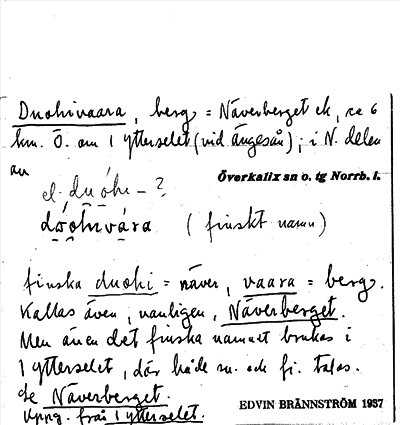 Duohivaara, berg = Näverberget ek, ca 6
km. Ö. om 1 Ytterselet (vid Ängesån); i N. delen
av
el. duóhi - ?
Överkalix sn o. tg Norrb. l.
dóohivára (finskt namn)
finska duohi = näver, vaara = berg.
Kallas även, vanligen, Näverberget.
Men även det finska namnet brukas i
1 Ytterselet, där både sv. och fi. talas.
Se Näverberget.
Uppg. från 1 Ytterselet.
EDVIN BRÄNNSTRÖM 1937